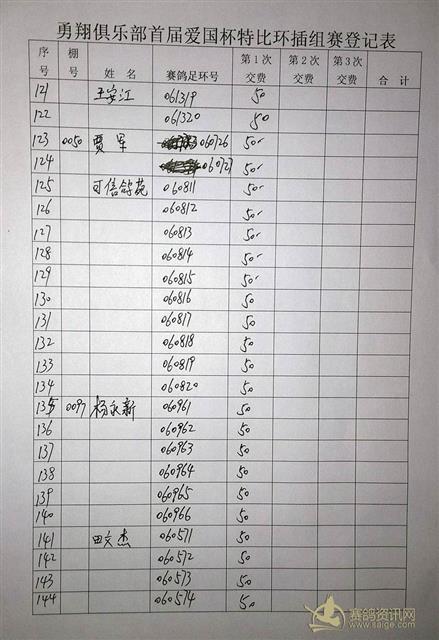 勇翔俱乐部首届爱国杯特比环插组赛登记表
序号 棚号 姓 名 赛鸽足环号 第1次交费 第2次交费 第3次交费 合 计
121 王安江 061319 50
122 061320 50
123 0050 贾军 060726 50
124 060727 50
125 可信鸽苑 060811 50
126 060812 50
127 060813 50
128 060814 50
129 060815 50
130 060816 50
131 060817 50
132 060818 50
133 060819 50
134 060820 50
135 0097 杨永新 060961 50
136 060962 50
137 060963 50
138 060964 50
139 060965 50
140 060966 50
141 田文杰 060571 50
142 060572 50
143 060573 50
144 060574 50
赛鸽资讯网
www.saige.com